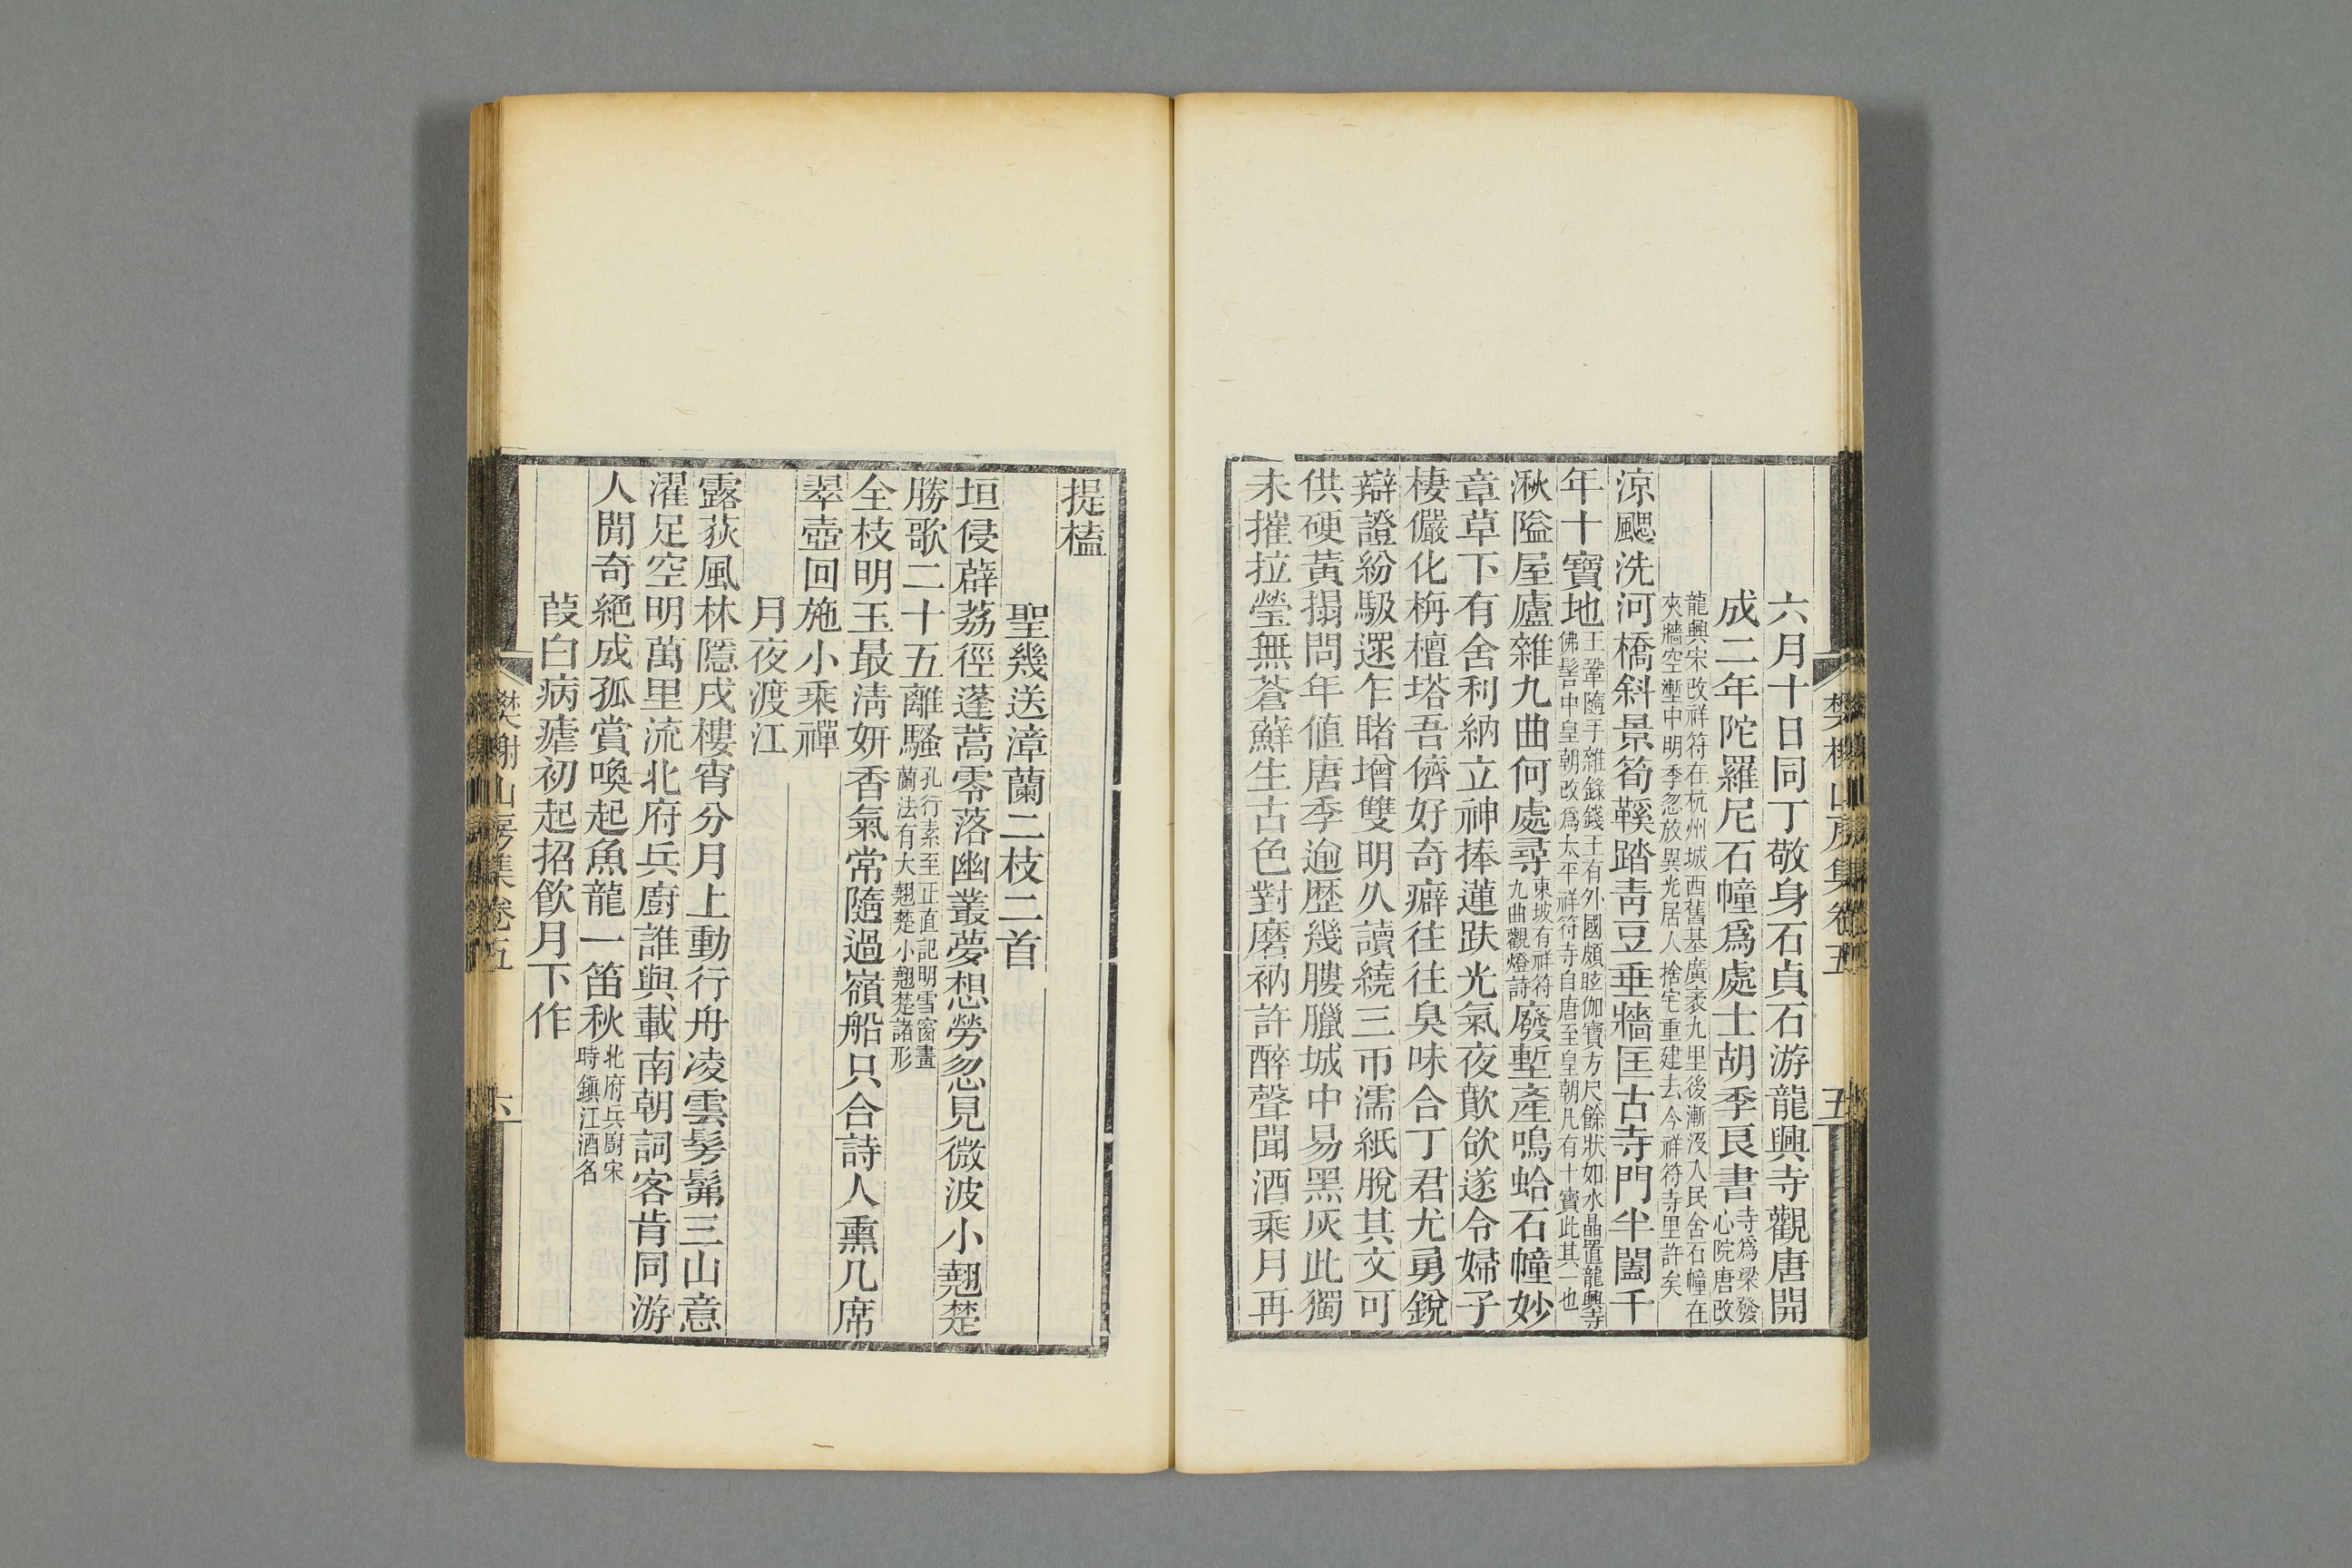 六月十日同丁敬身石貞石游龍興寺觀唐開
成二年陀羅尼石幢爲處士胡季良書寺爲梁發
心院唐改
龍興宋改祥符在杭州城西舊基廣袤九里後漸沒入民舍石幢在
夾牆空塹中明季忽放異光居人捨宅重建去今祥符寺里許矣
涼颸洗河橋斜景筍鞵踏靑豆垂牆匡古寺門半闔千
年十寶地王鞏隨手雜錄錢王有外國頗眩伽寶方尺餘狀如水晶置龍興寺
佛髻中皇朝改爲太平祥符寺自唐至皇朝凡有十寶此其一也
湫隘屋廬雜九曲何處尋東坡有祥符
九曲觀燈詩廢塹產鳴蛤石幢妙
章草下有舍利納立神捧蓮趺光氣夜歕欱遂令婦子
棲儼化栴檀塔吾儕好奇癖往往臭味合丁君尤勇銳
辯證紛馺遝乍睹增雙明久讀繞三帀濡紙脫其文可
供硬黃搨問年值唐季逾歷幾膢臘城中易黑灰此獨
未摧拉瑩無蒼蘚生古色對磨衲許醉聲聞酒乘月再
樊榭山房集卷五
五
提榼
聖幾送漳蘭二枝二首
垣侵薜荔徑蓬蒿零落幽叢夢想勞忽見微波小翹楚
勝歌二十五離騷孔行素至正直記明雪窗畫
蘭法有大翹楚小翹楚諸形
全枝明玉最淸妍香氣常隨過嶺船只合詩人熏几席
翠壺回施小乘禪
月夜渡江
露荻風林隱戍樓宵分月上動行舟凌雲髣髴三山意
濯足空明萬里流北府兵廚誰與載南朝詞客肯同游
人閒奇絕成孤賞喚起魚龍一笛秋北府兵廚宋
時鎭江酒名
葭白病瘧初起招飮月下作
樊榭山房集卷五
六